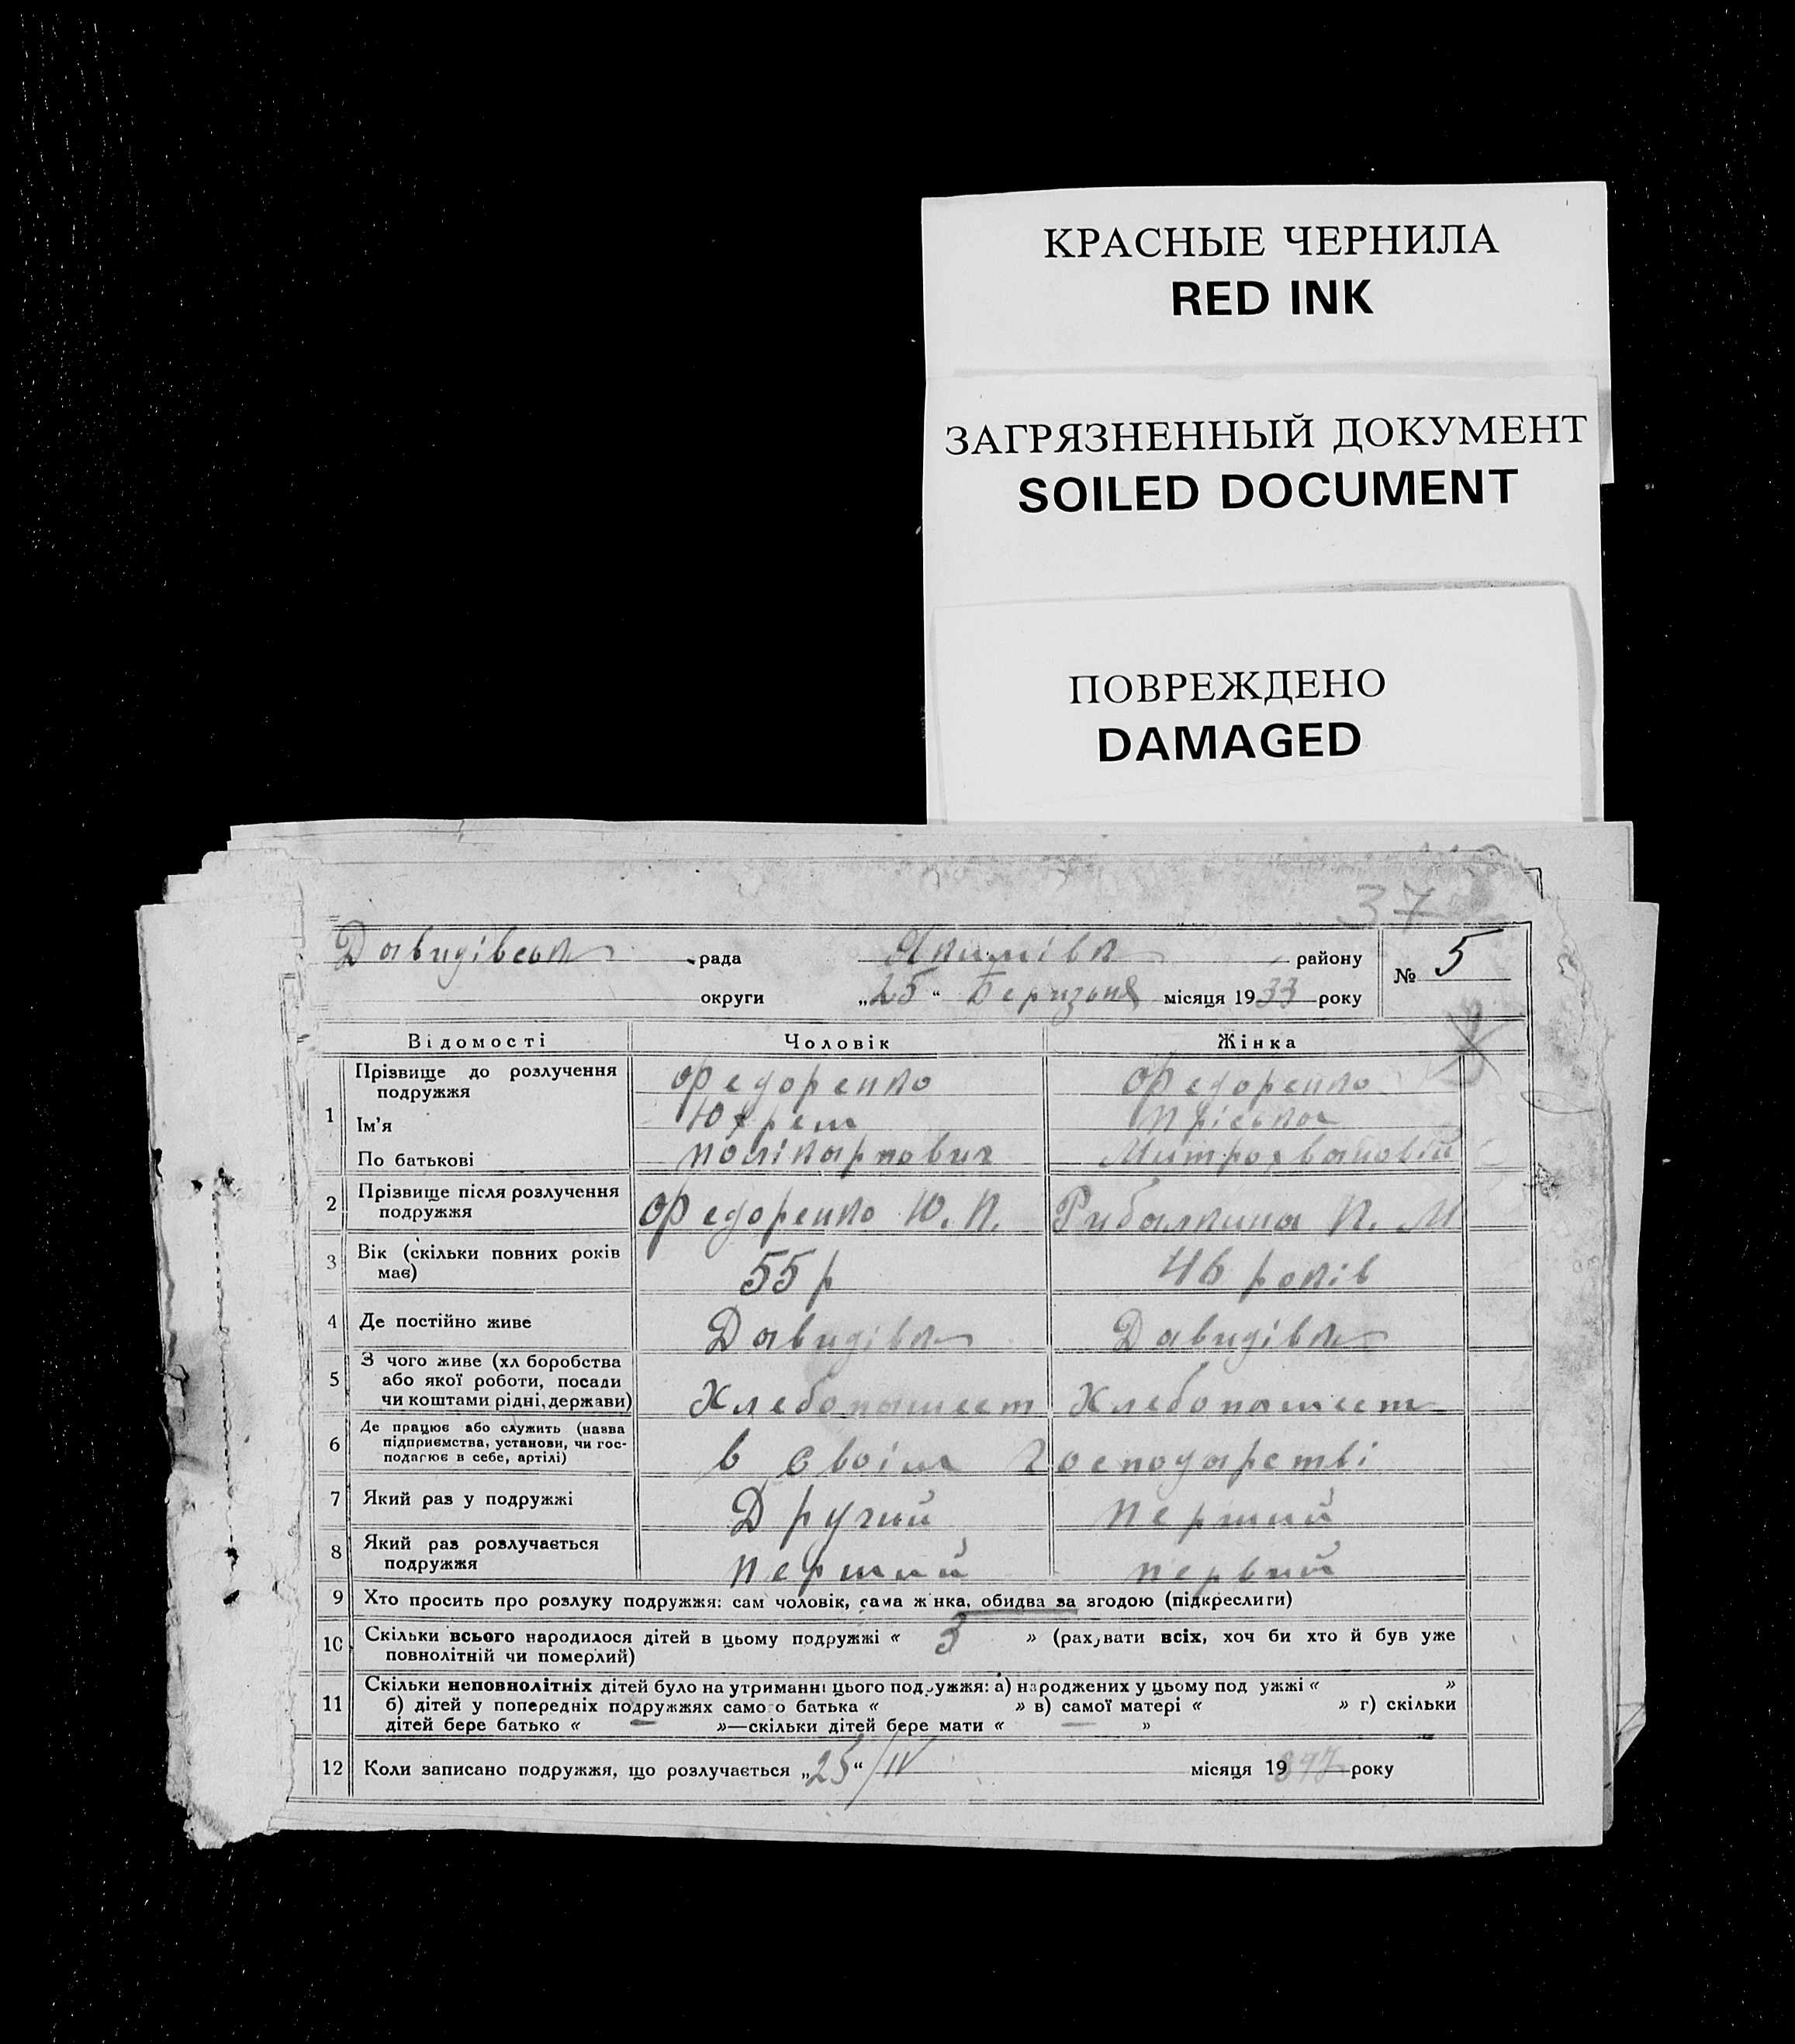 КРАСНЫЕ ЧЕРНИЛА
RED INK
ЗАГРЯЗНЕННЫЙ ДОКУМЕНТ
SOILED DOCUMENT
ПОВРЕЖДЕНО
DAMAGED
37
Давидівськ рада Якимівк району № 5
округи „25“ Беризня місяця 1933 року
Відомості Чоловік Жінка
1 Прізвище до розлучення подружжя Федоренко Федоренко
Ім'я Юхрем Пріська
По батькові Полікарпович Митрохвановій
2 Прізвище після розлучення подружжя Федоренко Ю. П. Рибалкина П. М
3 Вік (скільки повних років має) 55 р 46 років
4 Де постійно живе Давидівк Давидівк
5 З чого живе (хл боробства або якої роботи, посади чи коштами рідні, держави) Хлебопашест Хлебопашест
6 Де працює або служить (назва підприємства, установи, чи господарює в себе, артілі) в своім господарстві
7 Який раз у подружжі Другий перший
8 Який раз розлучається подружжя перший первий
9 Хто просить про розлуку подружжя: сам чоловік, сама ж нка, обидва за згодою (підкреслиги)
10 Скільки всього народилося дітей в цьому подружжі « 3 » (рахувати всіх, хоч би хто й був уже
повнолітній чи померлий)
11 Скільки неповнолітніх дітей було на утриманні цього подружжя: а) народжених у цьому под ужжі « »
б) дітей у попередніх подружжях самого батька « » в) самої матері « » г) скільки
дітей бере батько « — »—скільки дітей бере мати « — »
12 Коли записано подружжя, що розлучається „25“/IV місяця 19 897 року